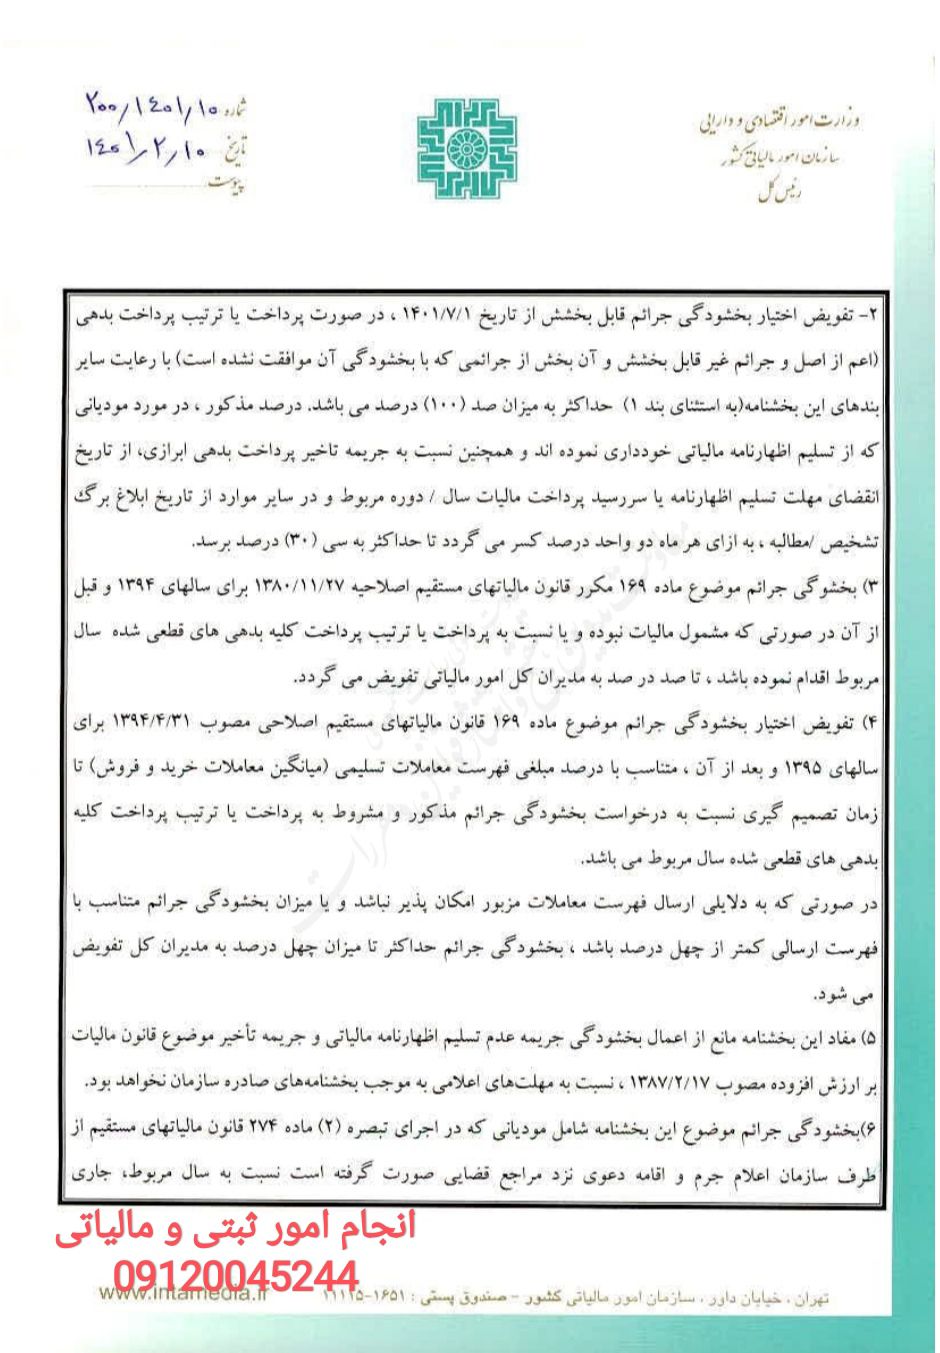 وزارت امور اقتصادی و دارایی
سازمان امور مالیاتی کشور
رئیس کل
شماره ۲۰۰/۱۴۰۱/۱۰
تاریخ ۱۴۰۱/۲/۱۰
پیوست
۲- تفویض اختیار بخشودگی جرائم قابل بخشش از تاریخ ۱۴۰۱/۷/۱ ، در صورت پرداخت یا ترتیب پرداخت بدهی
(اعم از اصل و جرائم غیر قابل بخشش و آن بخش از جرائمی که با بخشودگی آن موافقت نشده است) با رعایت سایر
بندهای این بخشنامه(به استثنای بند ۱) حداکثر به میزان صد (۱۰۰) درصد می باشد. درصد مذکور ، در مورد مودیانی
که از تسلیم اظهارنامه مالیاتی خودداری نموده اند و همچنین نسبت به جریمه تاخیر پرداخت بدهی ابرازی، از تاریخ
انقضای مهلت تسلیم اظهارنامه یا سررسید پرداخت مالیات سال / دوره مربوط و در سایر موارد از تاریخ ابلاغ برگ
تشخیص /مطالبه ، به ازای هر ماه دو واحد درصد کسر می گردد تا حداکثر به سی (۳۰) درصد برسد.
۳) بخشوگی جرائم موضوع ماده ۱۶۹ مکرر قانون مالیاتهای مستقیم اصلاحیه ۱۳۸۰/۱۱/۲۷ برای سالهای ۱۳۹۴ و قبل
از آن در صورتی که مشمول مالیات نبوده و یا نسبت به پرداخت یا ترتیب پرداخت کلیه بدهی های قطعی شده سال
مربوط اقدام نموده باشد ، تا صد در صد به مدیران کل امور مالیاتی تفویض می گردد.
۴) تفویض اختیار بخشودگی جرائم موضوع ماده ۱۶۹ قانون مالیاتهای مستقیم اصلاحی مصوب ۱۳۹۴/۴/۳۱ برای
سالهای ۱۳۹۵ و بعد از آن ، متناسب با درصد مبلغی فهرست معاملات تسلیمی (میانگین معاملات خرید و فروش) تا
زمان تصمیم گیری نسبت به درخواست بخشودگی جرائم مذکور و مشروط به پرداخت یا ترتیب پرداخت کلیه
بدهی های قطعی شده سال مربوط می باشد.
در صورتی که به دلایلی ارسال فهرست معاملات مزبور امکان پذیر نباشد و یا میزان بخشودگی جرائم متناسب با
فهرست ارسالی کمتر از چهل درصد باشد ، بخشودگی جرائم حداکثر تا میزان چهل درصد به مدیران کل تفویض
می شود.
۵) مفاد این بخشنامه مانع از اعمال بخشودگی جریمه عدم تسلیم اظهارنامه مالیاتی و جریمه تأخیر موضوع قانون مالیات
بر ارزش افزوده مصوب ۱۳۸۷/۲/۱۷ ، نسبت به مهلت‌های اعلامی به موجب بخشنامه‌های صادره سازمان نخواهد بود.
۶)بخشودگی جرائم موضوع این بخشنامه شامل مودیانی که در اجرای تبصره (۲) ماده ۲۷۴ قانون مالیاتهای مستقیم از
طرف سازمان اعلام جرم و اقامه دعوی نزد مراجع قضایی صورت گرفته است نسبت به سال مربوط، جاری
انجام امور ثبتی و مالیاتی
09120045244
تهران ، خیابان داور ، سازمان امور مالیاتی کشور - صندوق پستی : ۱۶۵۱-۱۱۱۱۵
www.intamedia.ir